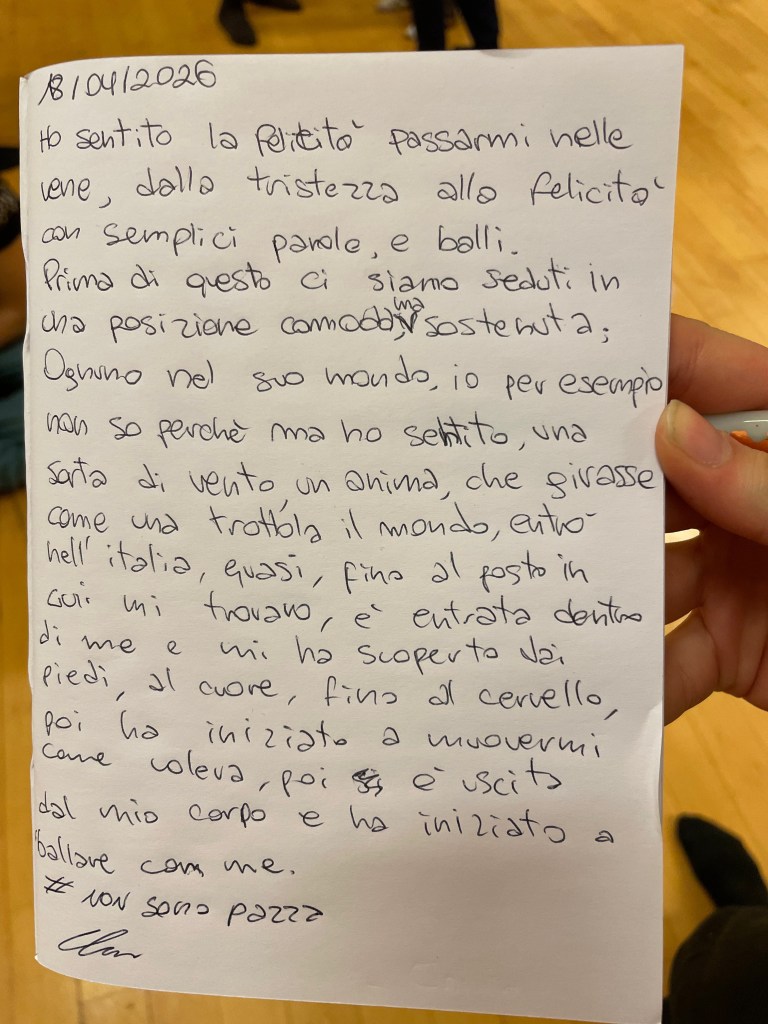 18/04/2026
Ho sentito la felicità passarmi nelle
vene, dalla tristezza alla felicità
con semplici parole, e balli.
Prima di questo ci siamo seduti in
una posizione comoda, ma sostenuta;
Ognuno nel suo mondo, io per esempio
non so perchè ma ho sentito, una
sorta di vento, un anima, che girasse
come una trottola il mondo, entrò
nell'italia, quasi, fino al posto in
cui mi trovavo, è entrata dentro
di me e mi ha scoperto dai
piedi, al cuore, fino al cervello,
poi ha iniziato a muovermi
come voleva, poi è uscita
dal mio corpo e ha iniziato a
ballare con me.
# non sono pazza